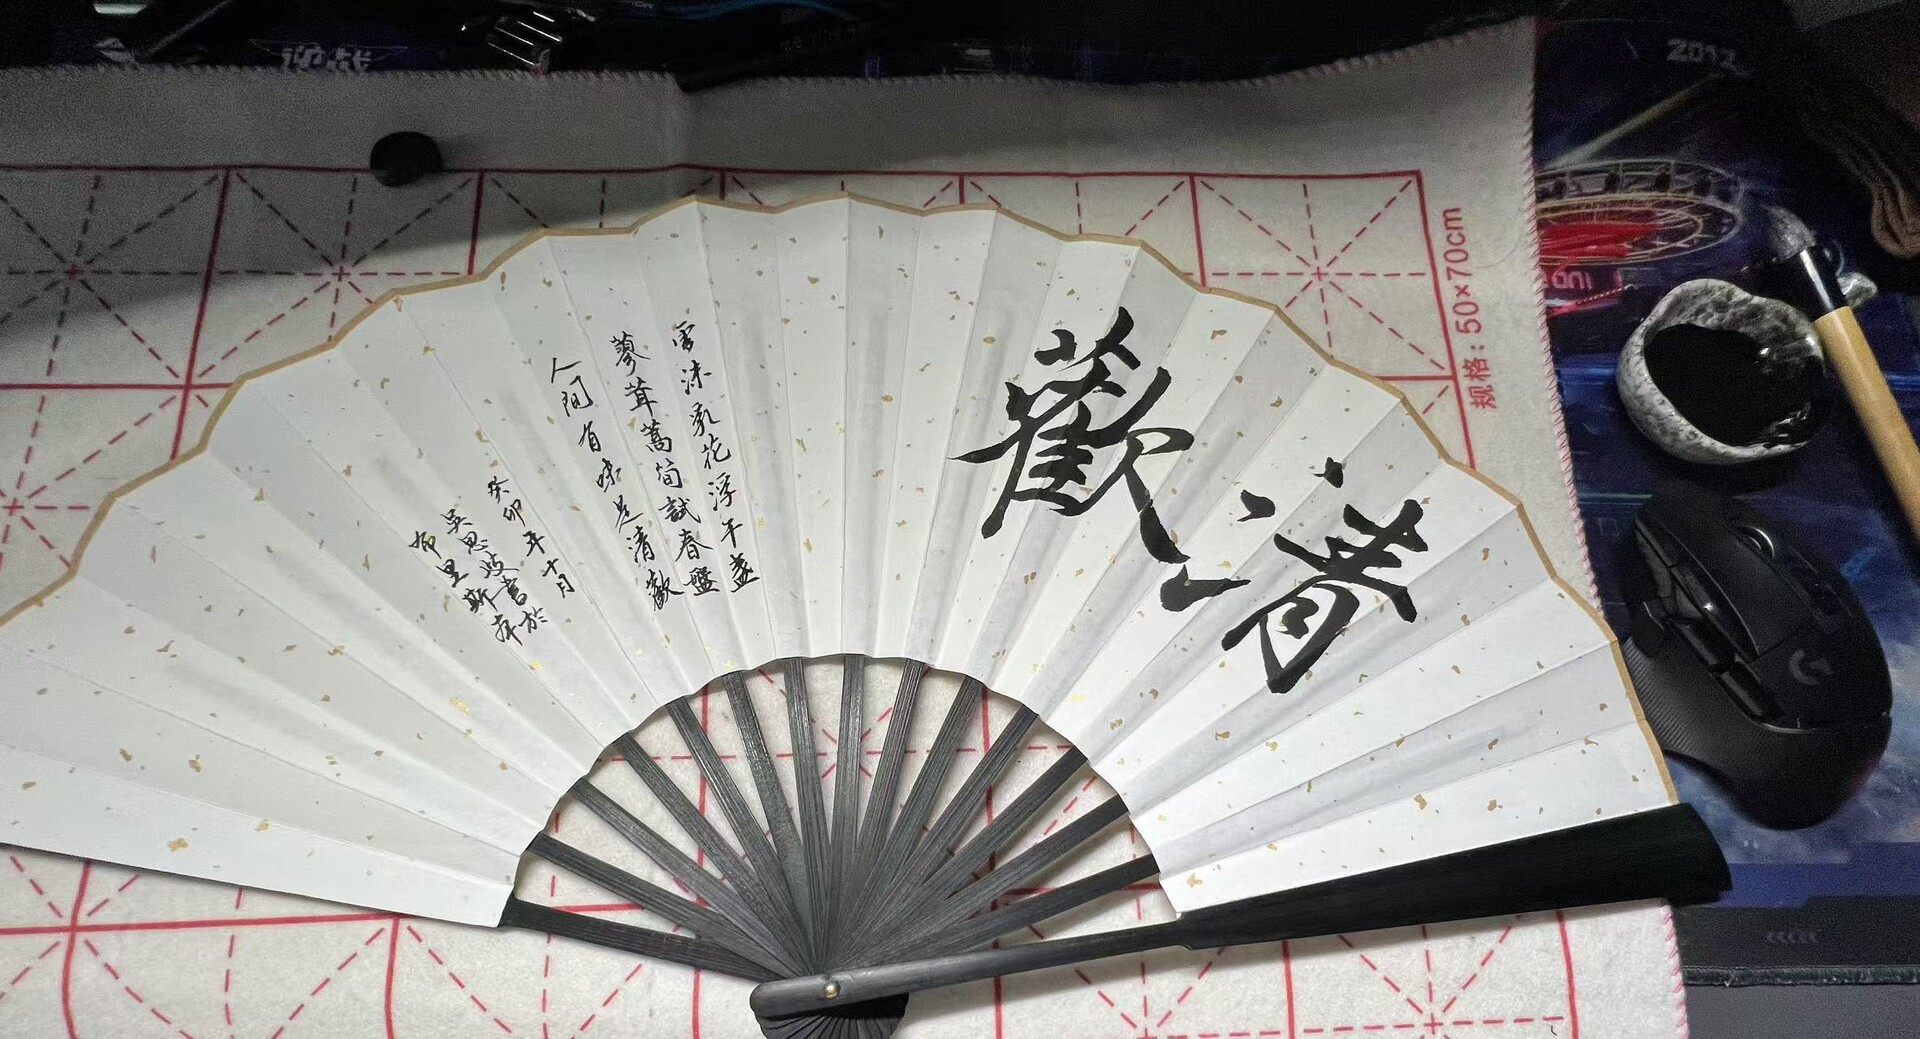 清歡
雪沫乳花浮午盞
蓼茸蒿筍試春盤
人間有味是清歡
癸卯年十月
吳思
書於
布里斯
规格:50×70cm
2012